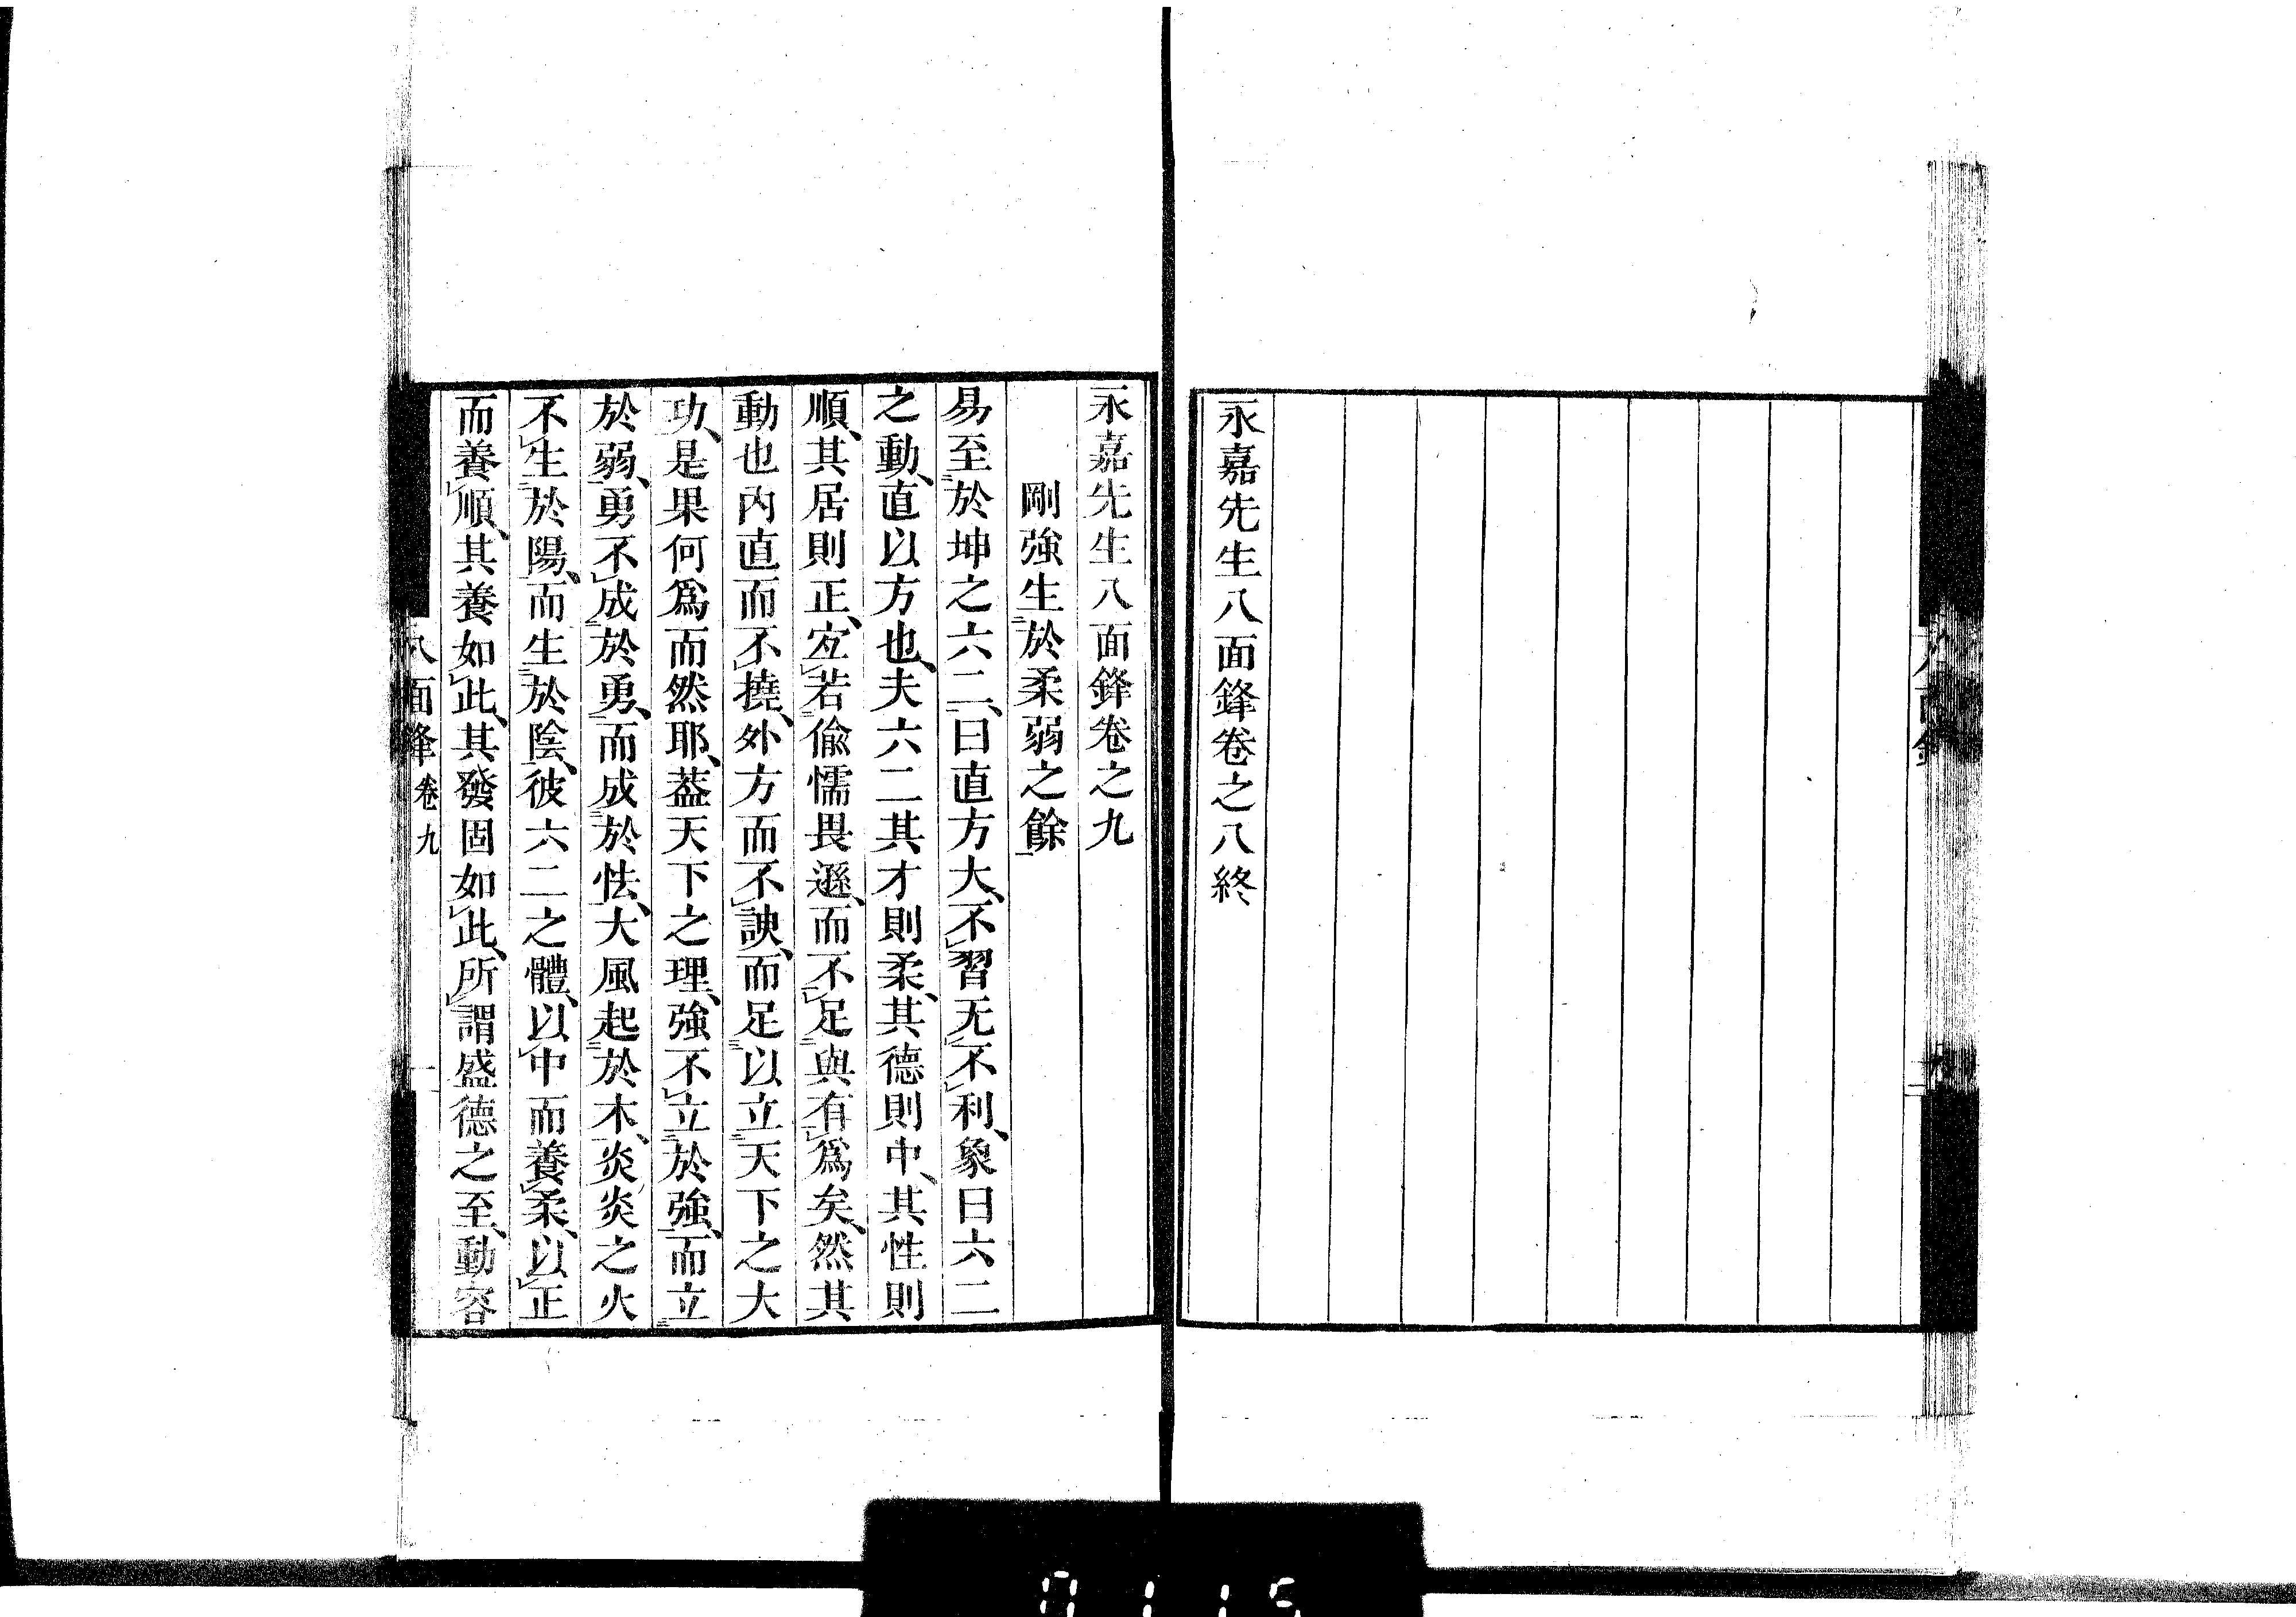 永嘉先生八面鋒卷之八終
永嘉先生八面鋒卷之九
剛強生於柔弱之餘
易至於坤之六二、曰直方大、不習无不利、象曰六二
之動、直以方也、夫六二其才則柔、其德則中、其性則
順、其居則正、宐若偸懦畏遜、而不足與有爲矣、然其
動也內直而不撓、外方而不諛、而足以立天下之大
功、是果何爲而然耶、葢天下之理、強不立於強、而立
於弱、勇不成於勇、而成於怯、大風起於木、炎炎之火
不生於陽、而生於陰、彼六二之體、以中而養柔、以正
而養順、其養如此、其發固如此、所謂盛德之至、動容
八面鋒 卷九 一
0115